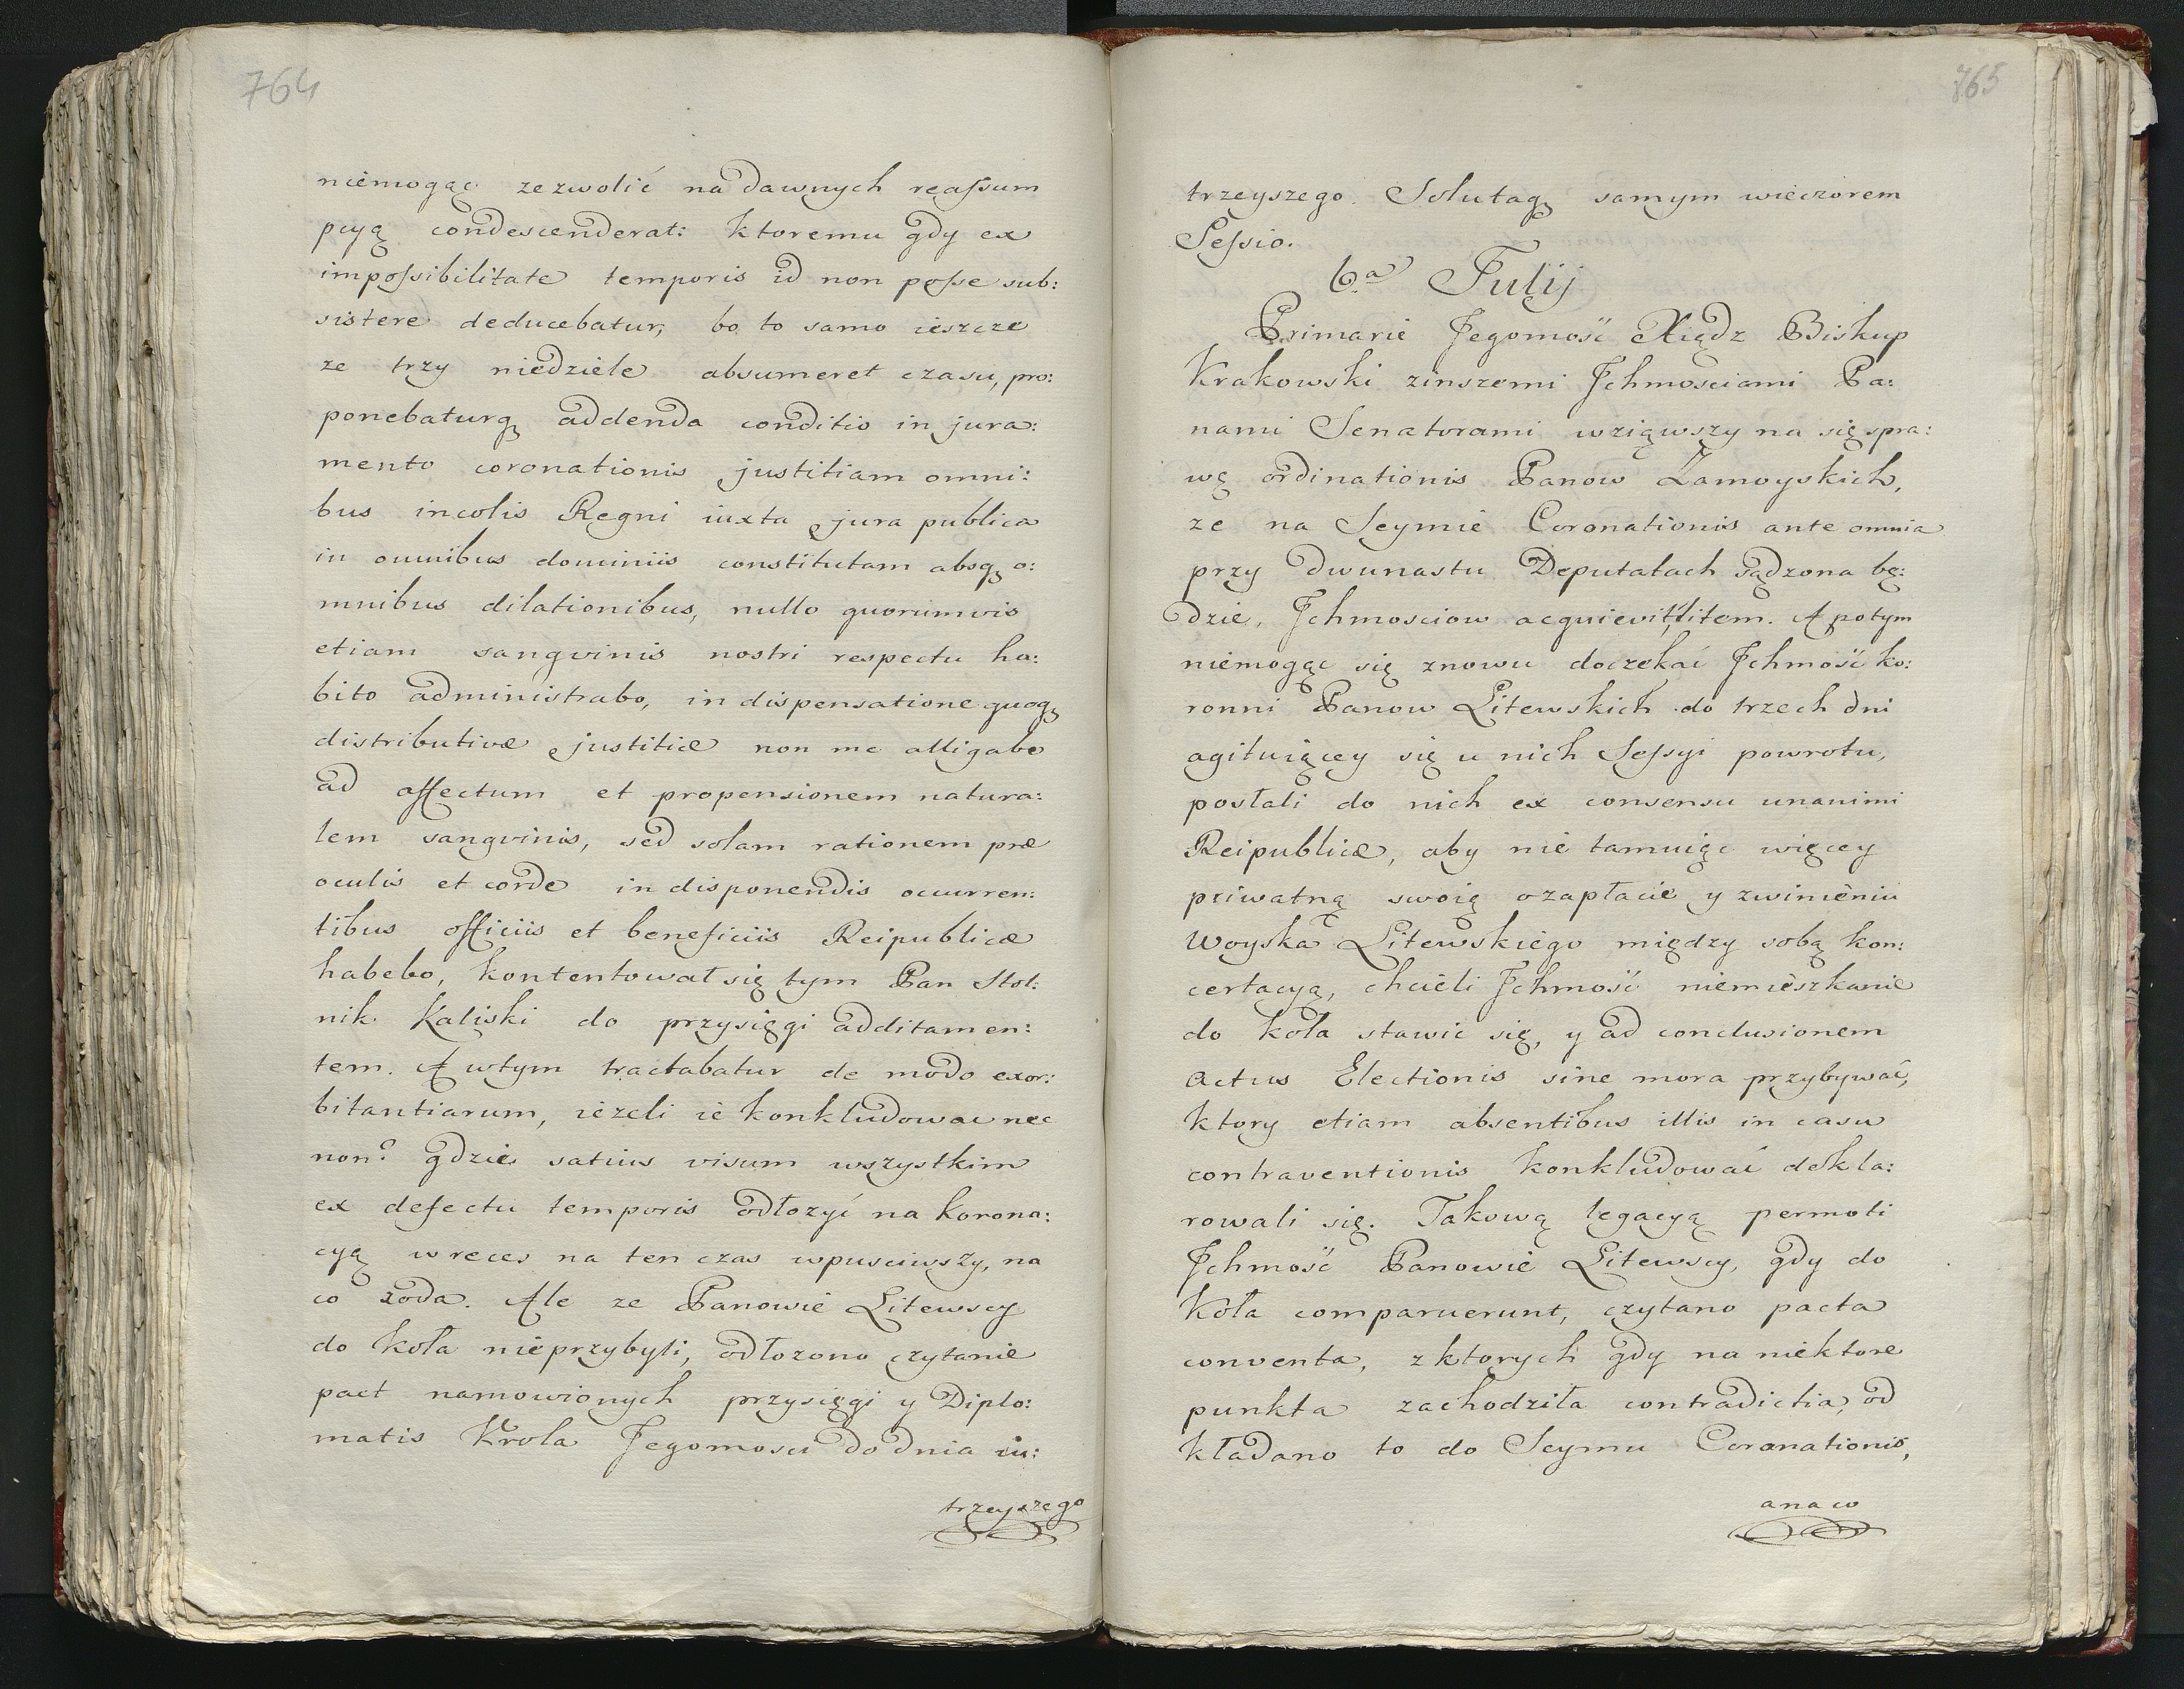 764
niemogąc zezwolić na dawnych reaſsum
pcyą condescenderat: ktoremu gdy ex
impoſsibilitate temporis id non poſse sub:
sistere deducebatur, bo to samo ieszcze
ze trzy niedziele absumeret czasu, pro:
ponebaturq, addenda conditio in jura:
mento coronationis justitiam omni:
bus incolis Regni iuxta jura publica
in omnibus dominiis constitutam absq, o:
mnibus dilationibus, nullo quorumvis
etiam sangvinis nostri respectu ha:
bito administrabo, in dispensatione quoq,
distributivæ justitiæ non me alligabo
ad affectum et propensionem natura:
lem sangvinis, sed solam rationem præ
oculis et corde in disponendis occurren:
tibus officiis et beneficiis Reipublicæ
habebo, kontentował się tym Pan Stol:
nik Kaliski do przysięgi additamen:
tem. A wtym tractabatur de modo exor:
bitantiarum, ieżeli ie konkludowac nec
non? gdzie satius visum wszystkim
ex defectu temporis odłozyć na korona:
cyą w reces na ten czas wpusciwszy, na
co zoda. Ale ze Panowie Litewscy
do koła nieprzybyli, odłozono czytanie
pact namowionych przysięgi y Diplo:
matis Krola Jegomosci do dnia iu:
trzeyszego
765
trzeyszego. Solutaq, samym wieczorem
Seſsio.
6.a Julij
Primarie Jegomość Xiądz Biskup
Krakowski zinszemi Jchmosciami Pa:
nami Senatorami wziąwszy na się spra:
wę ordinationis Panow Zamoyskich,
ze na Seymie Coronationis ante omnia
przy dwunastu Deputatach sądzona bę:
dzie, Jchmosciow acquievit litem. A potym
niemogąc się znowu doczekać Jchmość ko:
ronni Panow Litewskich do trzech dni
agituiącey się u nich Seſsyi powrotu,
posłali do nich ex consensu unanimi
Reipublicæ, aby nie tamuiąc więcey
priwatną swoią ozapłacie y zwinieniu
Woyska Litewskiego między sobą kon:
certacyą, chcieli Jchmość niemieszkanie
do koła stawić się, y ad conclusionem
actus Electionis sine mora przybywać,
ktory etiam absentibus illis in casu
contraventionis konkludować dekla:
rowali się. Takową legacyą permoti
Jchmość Panowie Litewscy, gdy do
Koła comparuerunt, czytano pacta
conventa, z ktorych gdy na niektore
punkta zachodziła contradictia, od
kładano to do Seymu Coronationis,
ana co